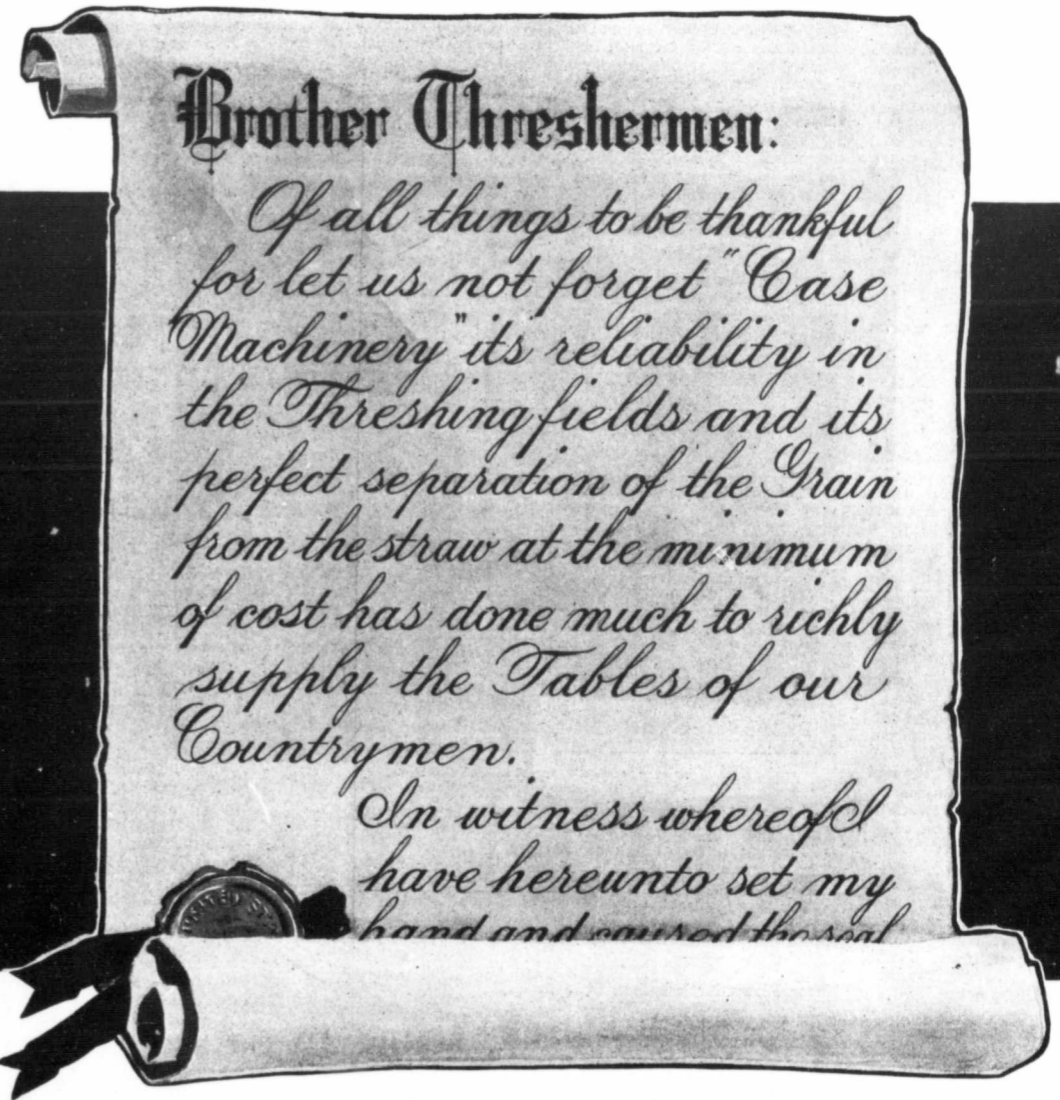 Brother Threshermen:
Of all things to be thankful
for let us not forget "Case
Machinery" its reliability in
the Threshing fields and its
perfect separation of the Grain
from the straw at the minimum
of cost has done much to richly
supply the Tables of our
Countrymen.
In witness whereof I
have hereunto set my
hand and caused the seal
UNITED ST